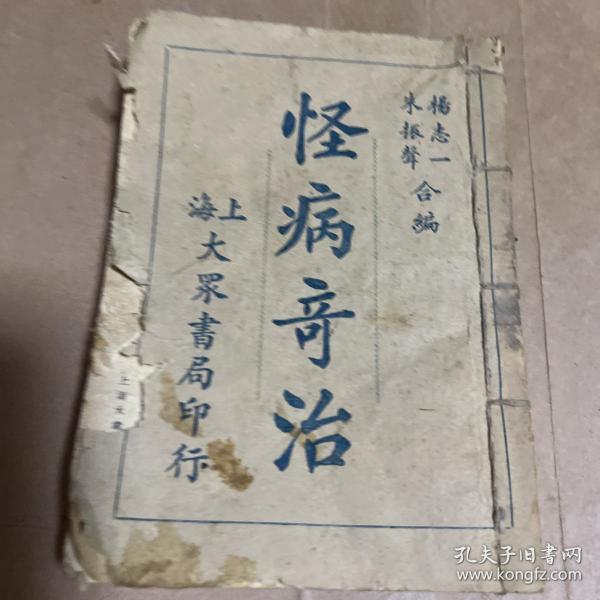 楊志一
朱振聲
合編
怪病奇治
上海
大眾書局印行
孔夫子旧书网
www.kongfz.com